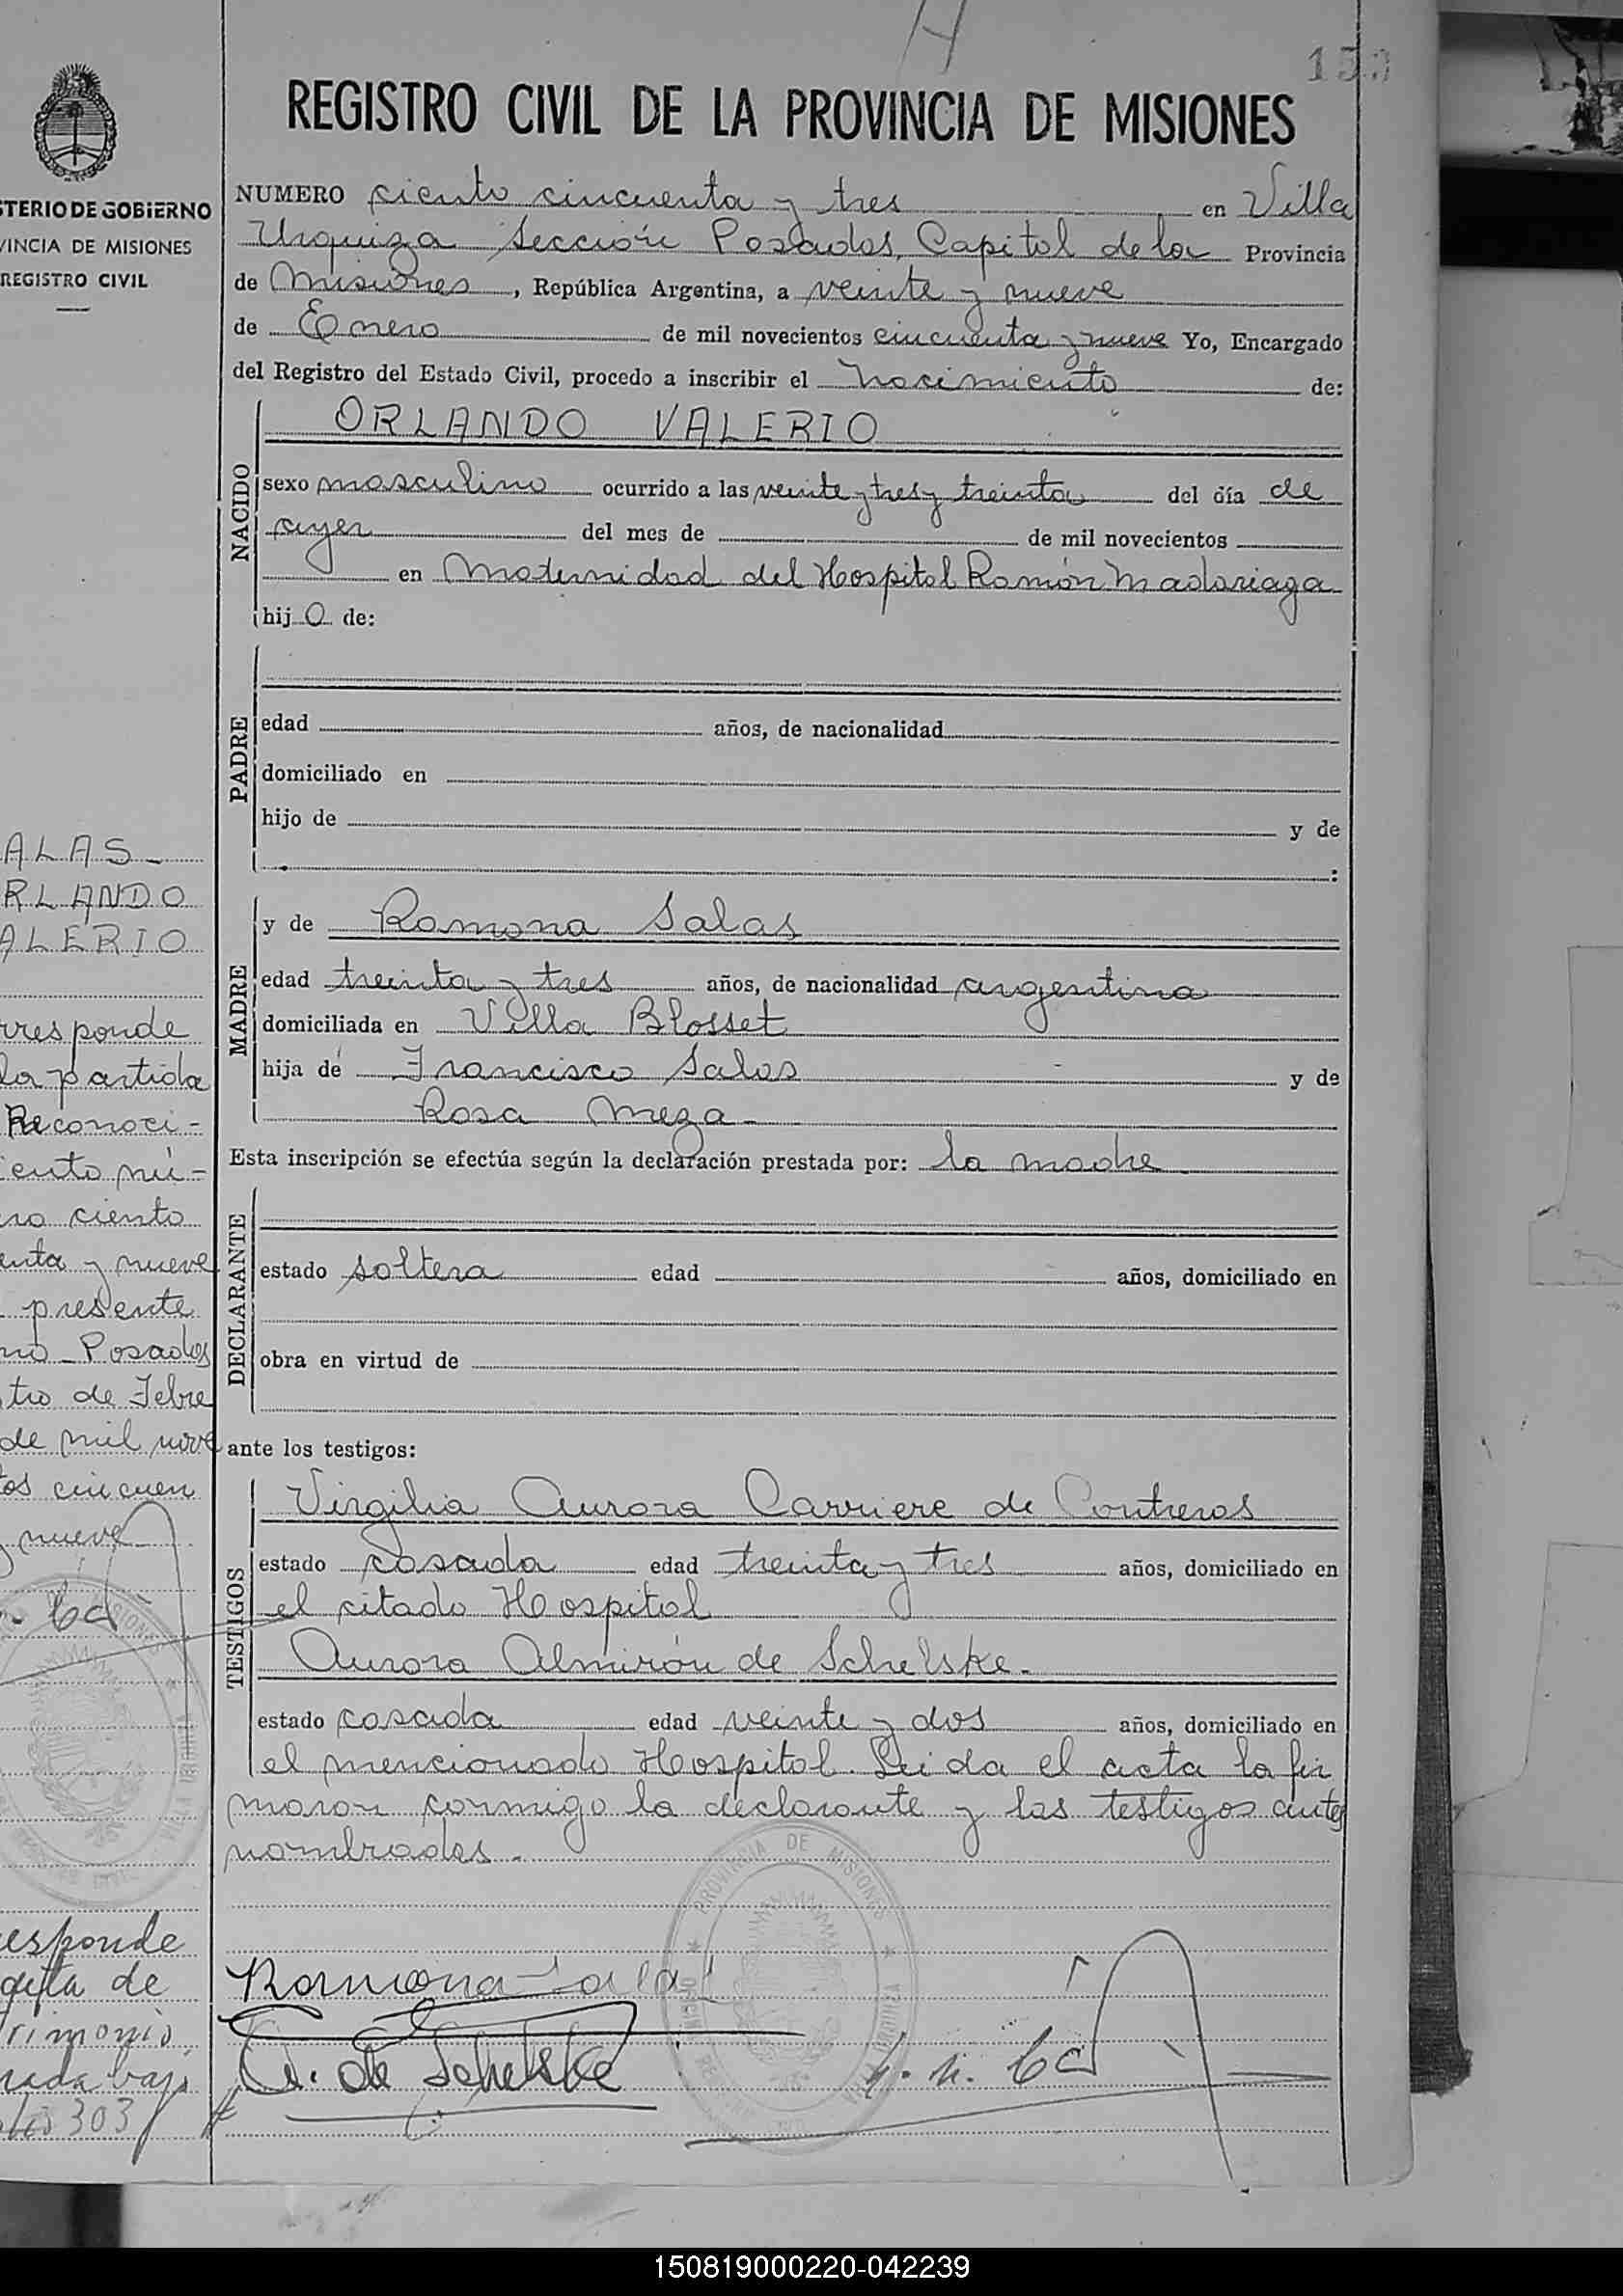 153
REGISTRO CIVIL DE LA PROVINCIA DE MISIONES
STERIO DE GOBIERNO
VINCIA DE MISIONES
REGISTRO CIVIL
NUMERO ciento cincuenta y tres en Villa
Urquiza Sección Posadas, Capital de la Provincia
de Misiones, República Argentina, a veinte y nueve
de Enero de mil novecientos cincuenta y nueve Yo, Encargado
del Registro del Estado Civil, procedo a inscribir el nacimiento de:
NACIDO
ORLANDO VALERIO
sexo masculino ocurrido a las veinte y tres y treinta del día de
ayer del mes de de mil novecientos
en Maternidad del Hospital Ramón Madariaga
hijo de:
PADRE
edad años, de nacionalidad
domiciliado en
hijo de y de
:
MADRE
y de Ramona Salas
edad treinta y tres años, de nacionalidad argentina
domiciliada en Villa Blosset
hija de Francisco Salas y de
Rosa Meza-
Esta inscripción se efectúa según la declaración prestada por: la madre
DECLARANTE
estado soltera edad años, domiciliado en
obra en virtud de
ante los testigos:
TESTIGOS
Virgilia Aurora Carriere de Contreras
estado casada edad treinta y tres años, domiciliado en
el citado Hospital
Aurora Almirón de Schelske.
estado casada edad veinte y dos años, domiciliado en
el mencionado Hospital. Leida el acta la fir
maron conmigo la declarante y las testigos antes
nombradas.
PROVINCIA DE MISIONES
Ramona Sala
A. de Schelske
ALAS-
RLANDO
ALERIO
rresponde
la partida
Reconoci-
iento nú-
ro ciento
enta y nueve
presente
no- Posadas
tro de Febre
de mil nove
tos cincuen
y nueve
esponde
de
rimonio
rada bajo
303
150819000220-042239